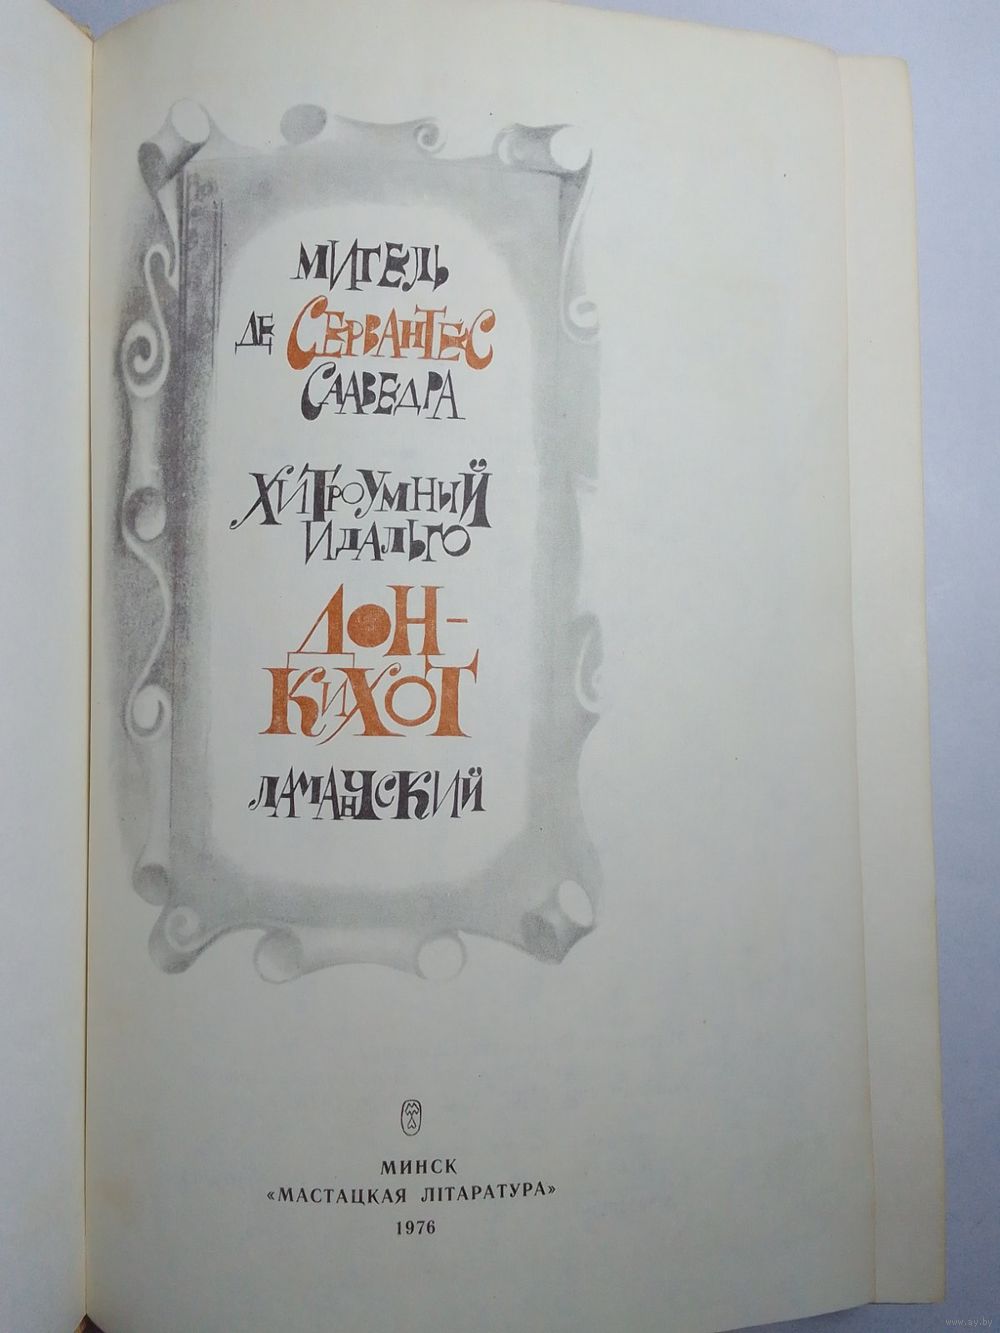 МИГЕЛЬ
ДЕ СЕРВАНТЕС
СААВЕДРА
ХИТРОУМНЫЙ
ИДАЛЬГО
ДОН-
КИХОТ
ЛАМАНЧСКИЙ
МИНСК
«МАСТАЦКАЯ ЛІТАРАТУРА»
1976
www.ay.by